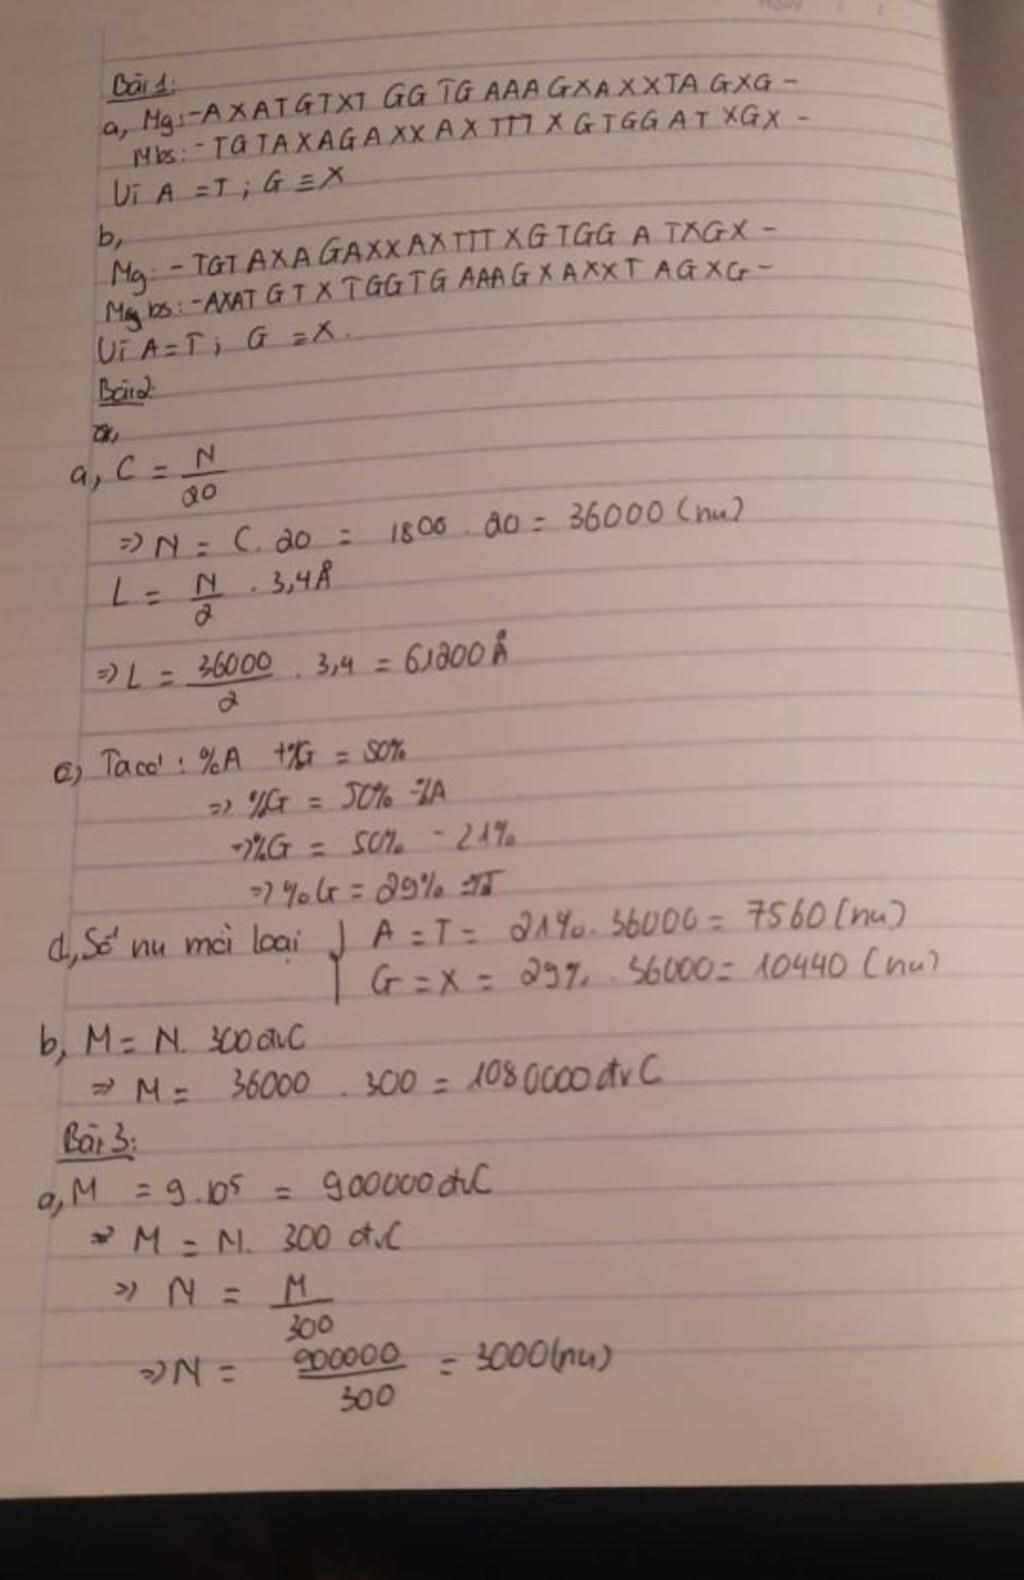 Bài 1:
a, Mg: -AXATGTXT GGTG AAAGXAXXTA GXG-
Mbs: -TGTAXAGAXXAXTTTXGTGGAT XGX-
Vì A = T ; G ≡ X
b,
Mg: -TGTAXAGAXXAXTTTXGTGG A TXGX-
Mg bs: -AXATGTXTGGTG AAAGXAXXT AGXG-
Vì A = T ; G ≡ X.
Bài 2:
a, C = N/20
=> N = C. 20 = 1800 . 20 = 36000 (nu)
L = N/2 . 3,4Å
=> L = 36000/2 . 3,4 = 61200 Å
c) Ta có : %A +%G = 50%
=> %G = 50% -%A
=>%G = 50% - 21%
=> %G = 29%
d, Số nu mỗi loại } A = T = 21%. 36000 = 7560 (nu)
G = X = 29% . 36000 = 10440 (nu)
b, M = N. 300 đvC
=> M = 36000 . 300 = 10800000 đvC
Bài 3:
a, M = 9.10⁵ = 900000 đvC
=> M = N. 300 đvC
=> N = M/300
=> N = 900000/300 = 3000(nu)